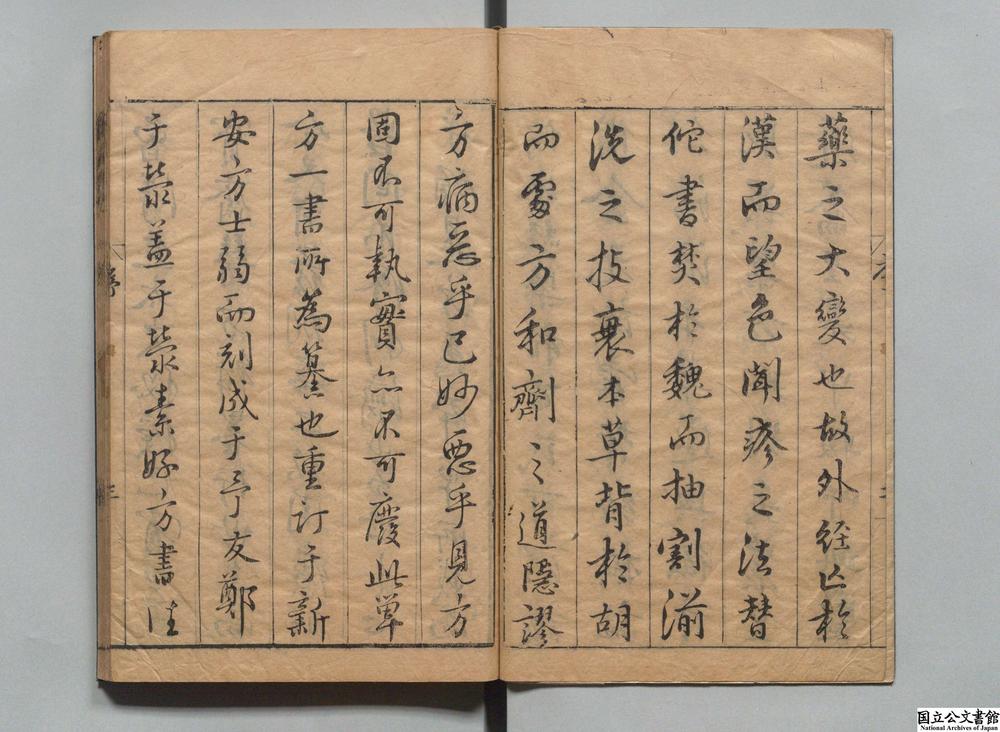 藥之大變也故外經亡於
漢而望色聞疹之法替
佗書焚於魏而抽割湔
洗之技衰本草背於胡
而處方和劑之道隱謬
方痛惡乎已妙惡乎見方
固不可執實亦不可廢此單
方一書所為纂也重訂于新
安方士弱而刻成于予友鄭
于榮蓋于榮素好方書往
序
三
国立公文書館
National Archives of Japan